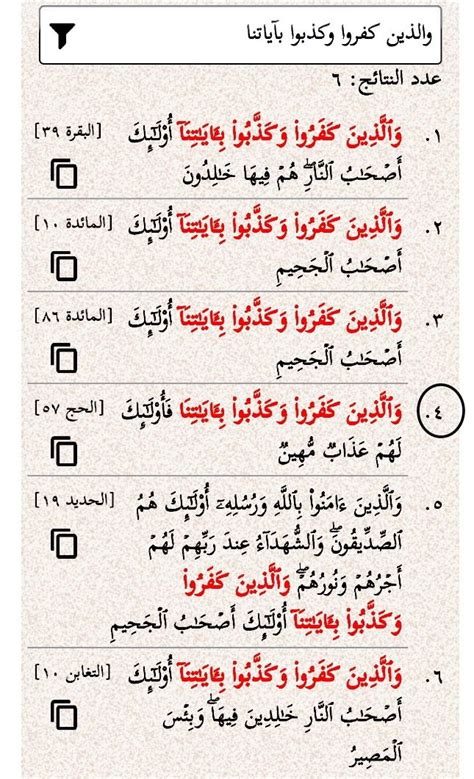 والذين كفروا وكذبوا بآياتنا
عدد النتائج: ٦
١. وَٱلَّذِينَ كَفَرُوا۟ وَكَذَّبُوا۟ بِـَٔايَـٰتِنَآ أُو۟لَـٰٓئِكَ [البقرة ٣٩]
أَصْحَـٰبُ ٱلنَّارِ ۖ هُمْ فِيهَا خَـٰلِدُونَ
٢. وَٱلَّذِينَ كَفَرُوا۟ وَكَذَّبُوا۟ بِـَٔايَـٰتِنَآ أُو۟لَـٰٓئِكَ [المائدة ١٠]
أَصْحَـٰبُ ٱلْجَحِيمِ
٣. وَٱلَّذِينَ كَفَرُوا۟ وَكَذَّبُوا۟ بِـَٔايَـٰتِنَآ أُو۟لَـٰٓئِكَ [المائدة ٨٦]
أَصْحَـٰبُ ٱلْجَحِيمِ
٤. وَٱلَّذِينَ كَفَرُوا۟ وَكَذَّبُوا۟ بِـَٔايَـٰتِنَا فَأُو۟لَـٰٓئِكَ [الحج ٥٧]
لَهُمْ عَذَابٌ مُّهِينٌ
٥. وَٱلَّذِينَ ءَامَنُوا۟ بِٱللَّهِ وَرُسُلِهِۦٓ أُو۟لَـٰٓئِكَ هُمُ [الحديد ١٩]
ٱلصِّدِّيقُونَ ۖ وَٱلشُّهَدَآءُ عِندَ رَبِّهِمْ لَهُمْ
أَجْرُهُمْ وَنُورُهُمْ ۖ وَٱلَّذِينَ كَفَرُوا۟
وَكَذَّبُوا۟ بِـَٔايَـٰتِنَآ أُو۟لَـٰٓئِكَ أَصْحَـٰبُ ٱلْجَحِيمِ
٦. وَٱلَّذِينَ كَفَرُوا۟ وَكَذَّبُوا۟ بِـَٔايَـٰتِنَآ أُو۟لَـٰٓئِكَ [التغابن ١٠]
أَصْحَـٰبُ ٱلنَّارِ خَـٰلِدِينَ فِيهَا ۖ وَبِئْسَ
ٱلْمَصِيرُ